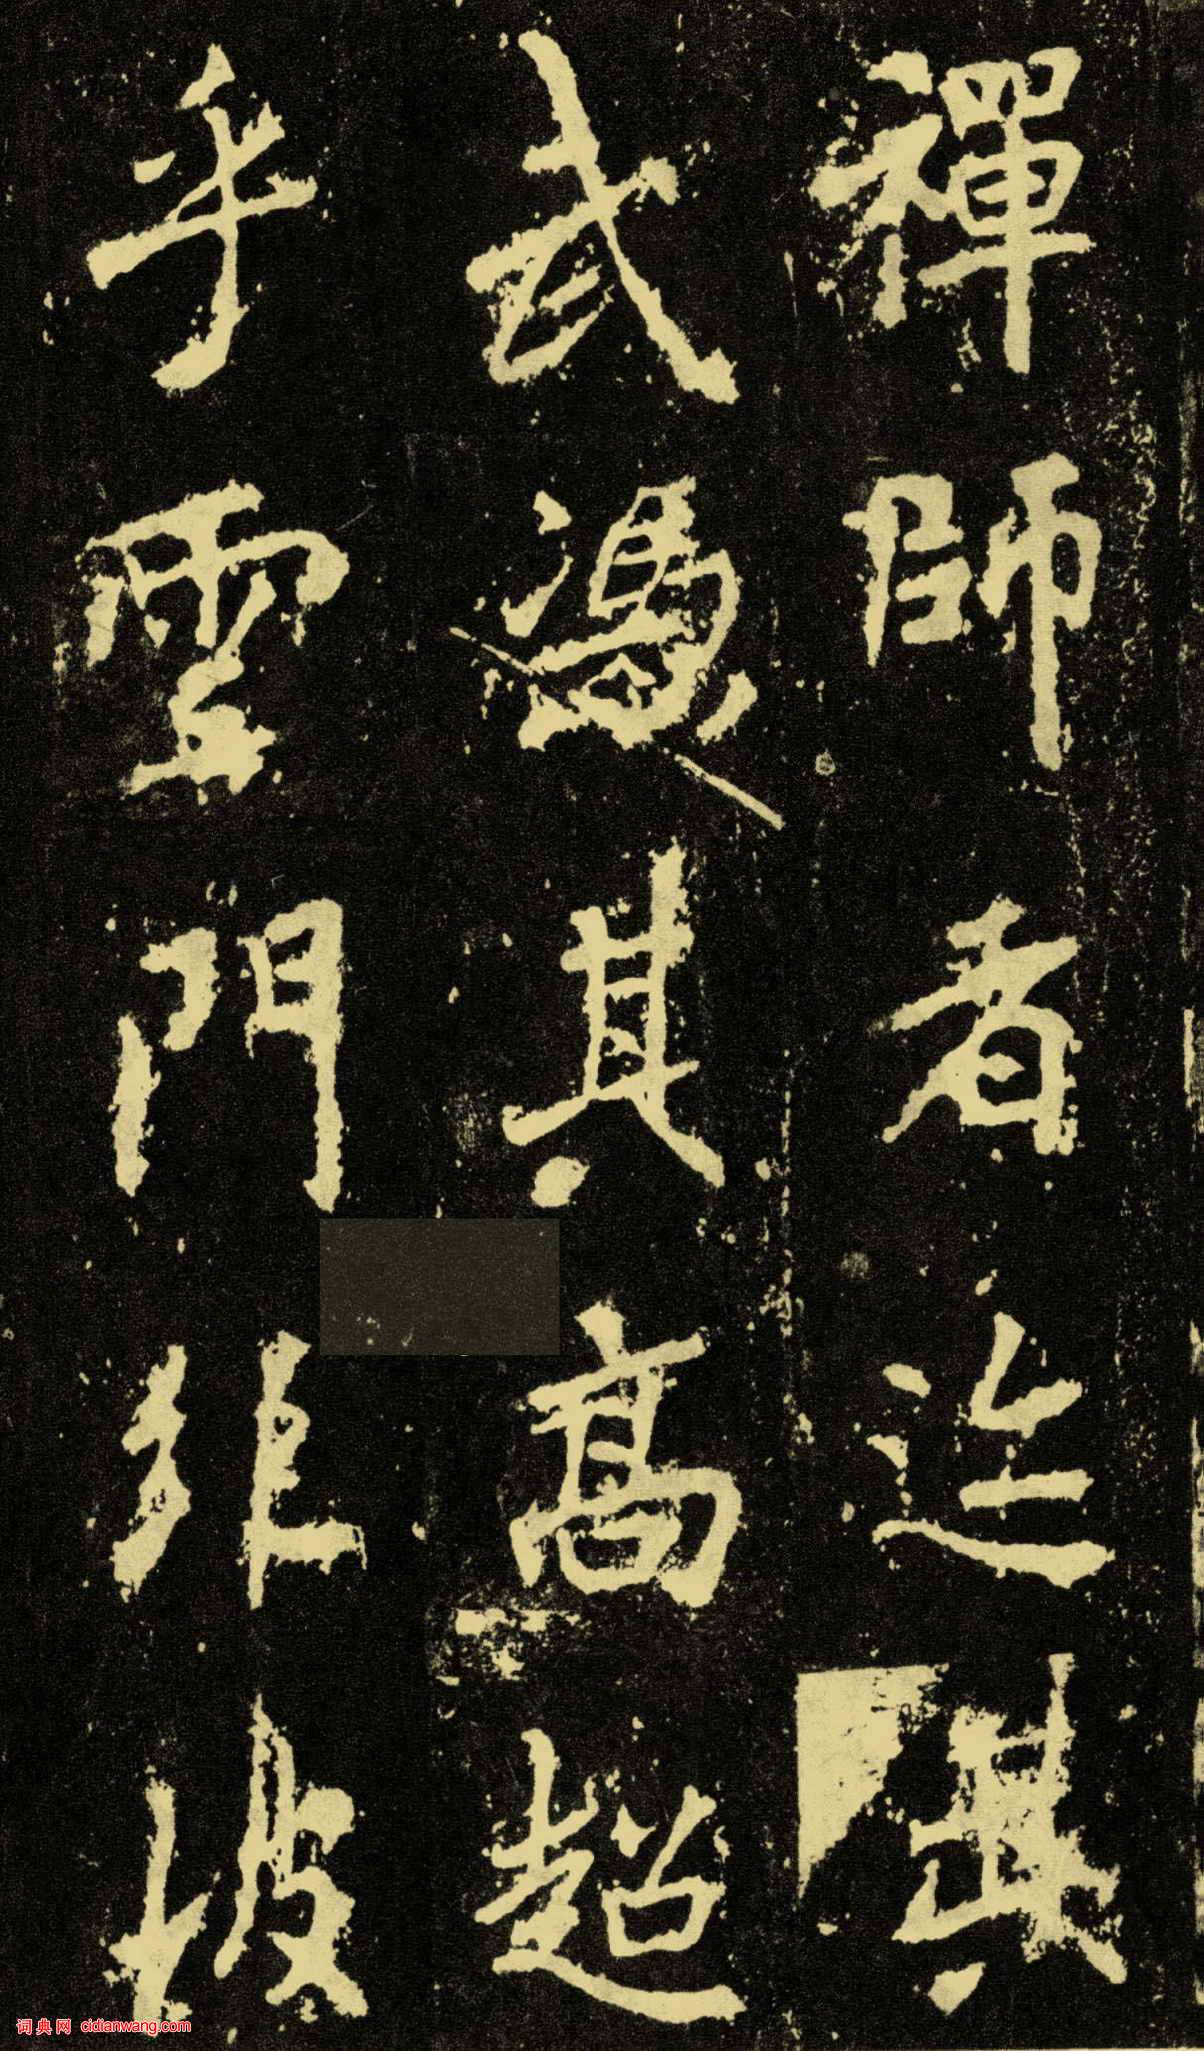 禪師者迄其
武憑其高超
乎雲門非
词典网 cidianwang.com